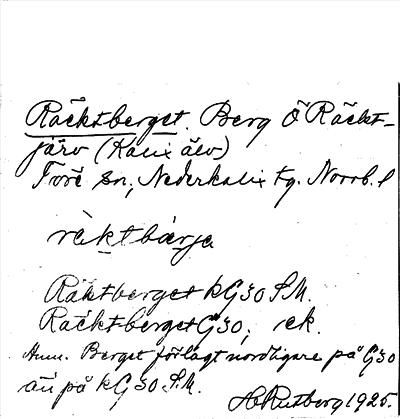 Räcktberget. Berg Ö Räckt-
järv (Kalix älv)
Töre sn, Nederkalix tg. Norrb. l
räktbärje
Räktberget kG30 S.M.
Räcktberget G30, ek.
Anm. Berget förlagt nordligare på G30
än på kG30 S.M.
H Rutberg 1925.